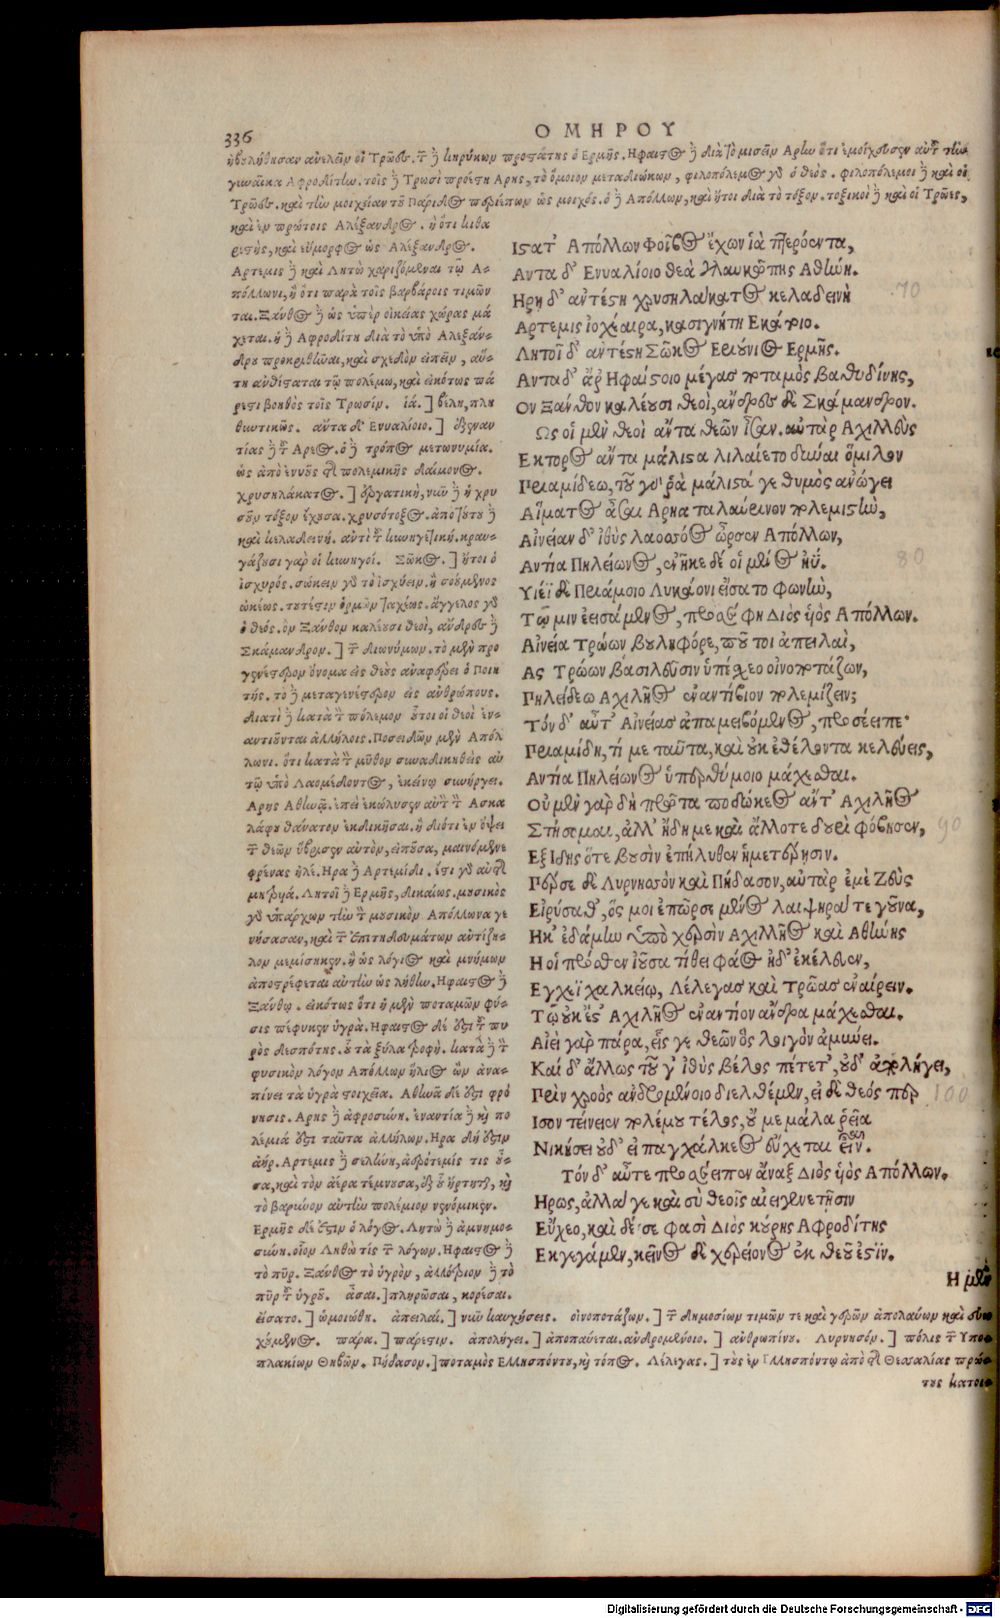 336
ΟΜΗΡΟΥ
ἠβουλήθησαν ἀνελεῖν οἱ Τρῶες. τῶν δὲ κηρύκων προστάτης ὁ Ερμῆς. Ηφαιστος δὲ διὰ τὸ μισεῖν Αρην ὅτι ἐμοίχευσεν αὐτοῦ τὴν
γυναῖκα Αφροδίτην. τοῖς δὲ Τρωσὶ προέστη Αρης, τὸ ὅμοιον μεταδιώκων, φιλοπόλεμος γὰρ ὁ θεός. φιλοπόλεμοι δὲ καὶ οἱ
Τρῶες. καὶ τὴν μοιχείαν τοῦ Παριδος περιέπων ὡς μοιχός. ὁ δὲ Απόλλων, καὶ ἤτοι διὰ τὸ τόξον. τοξικοὶ δὲ καὶ οἱ Τρῶες,
καὶ ἐν πρώτοις Αλέξανδρος. ἢ ὅτι κιθα
ριστὴς, καὶ εὔμορφος ὡς Αλέξανδρος.
Αρτεμις δὲ καὶ Λητὼ χαριζόμεναι τῷ Α-
πόλλωνι, ἢ ὅτι παρὰ τοῖς βαρβάροις τιμῶν
ται. Ξανθος δὲ ὡς ὑπὲρ οἰκείας χώρας μά
χεται. ἡ δὲ Αφροδίτη διὰ τὸ ὑπὸ Αλεξάν-
δρου προκριθῆναι, καὶ σχεδὸν εἰπεῖν, αὕ-
τη ἀνθίσταται τῷ πολέμῳ, καὶ εἰκότως πά
ρεστι βοηθὸς τοῖς Τρωσίν. ἰά.] βέλη, πλη
θυντικῶς. αντα δ' Ενυαλίοιο.] ἐξεναν
τίας δὲ τοῦ Αρεος. ὁ δὲ τρόπος μετωνυμία.
ὡς ἀπὸ ἐνυοῦς τῆς πολεμικῆς δαίμονος.
χρυσηλάκατος.] ἐργατικὴ, νῦν δὲ ἡ χρυ
σοῦν τόξον ἔχουσα. χρυσότοξος. ἀπὸ τούτου δὲ
καὶ κελαδεινή. αὐτὶ τοῦ κυνηγετική. κραυ-
γάζουσι γαρ οἱ κυνηγοί. Σῶκος.] ἤτοι ὁ
ἰσχυρός. σώκειν γὰρ τὸ ἰσχύειν. ἢ σούμενος
ὠκέως. τουτέστιν ὁρμῶν ταχέως. ἄγγελος γὰρ
ὁ θεός. ὃν Ξάνθον καλέουσι θεοὶ, ἄνδρες δὲ
Σκάμανδρον.] τῶν διωνύμων. τὸ μὲν προ
γενέστερον ὄνομα εἰς θεοὺς ἀναφέρει ὁ Ποιη
τής. τὸ δὲ μεταγενέστερον εἰς ἀνθρώπους.
διατί δὲ κατὰ τὸν πόλεμον οὗτοι οἱ θεοὶ ἐν-
αντιοῦνται ἀλλήλοις. Ποσειδῶν μὲν Απόλ
λωνι. ὅτι κατὰ τὸν μῦθον συναδικηθεὶς αὐ
τῷ ὑπὸ Λαομέδοντος, ἐκείνῳ συνήργει.
Αρης Αθηνᾷ. ἐπεὶ ἐκώλυσεν αὐτὸν τὸν Ασκα
λάφου θάνατον ἐκδικῆσαι. ἢ διότι ἐν ὄψει
τῶν θεῶν ὕβρισεν αὐτὸν, εἰποῦσα, μαινόμενε
φρένας ἠλέ. Ηρα δὲ Αρτεμίδι. ἔστι γὰρ αὐτῆς
μητρυιά. Λητοῖ δὲ Ερμῆς, δικαίως. μυσικὸς
γὰρ ὑπάρχων τὴν τὸν μυσικὸν Απόλλωνα γε
νήσασαν, καὶ τῶν ἐπιτηδευμάτων αὐτίζη-
λον μεμίσηκεν. ἢ ὡς λόγιος καὶ μνήμων
ἀποστρέφεται αὐτὴν ὡς λήθην. Ηφαιστος δὲ
Ξάνθῳ. εἰκότως ὅτι ἡ μὲν ποταμῶν φύ-
σις πέφυκεν ὑγρά. Ηφαιστος δέ ἐστι τοῦ πυ
ρὸς δεσπότης. οὗ τὰ ξύλα τροφή. κατὰ δὲ τὸν
φυσικὸν λόγον Απόλλων ἥλιος ὢν ἀνα-
πίνει τὰ ὑγρὰ στοιχεῖα. Αθηνᾶ δέ ἐστι φρό
νησις. Αρης δὲ ἀφροσύνη. ἐναντία δὲ καὶ πο
λέμιά ἐστι ταῦτα ἀλλήλων. Ηρα δὴ ἐστιν
ἀήρ. Αρτεμις δὲ σελήνη, ἀερότεμίς τις οὖ-
σα, καὶ τὸν ἀέρα τέμνουσα, ἐξ οὗ ἤρτηται, καὶ
τὸ βαρύνον αὐτὴν πολέμιον νενόμικεν.
Ερμῆς δέ ἐστιν ὁ λόγος. Λητὼ δὲ ἀμνημο-
σύνη. οἷον Ληθώ τις τῶν λόγων. Ηφαιστος δὲ
τὸ πῦρ. Ξανθος τὸ ὑγρὸν, ἀλλότριον δὲ τὸ
πῦρ τοῦ ὑγροῦ. ἆσαι.] πληρῶσαι, κορέσαι.
Ιστατ' Απόλλων Φοῖβος ἔχων ἰὰ πτερόεντα,
Αντα δ' Ενυαλίοιο θεὰ γλαυκῶπις Αθήνη.
Ηρῃ δ' αὐτέστη χρυσηλάκατος κελαδεινὴ
70
Αρτεμις ἰοχέαιρα, κασιγνήτη Εκάτοιο.
Λητοῖ δ' αὐτέστη Σῶκος Εριούνιος Ερμῆς.
Αντα δ' ἄρ' Ηφαίστοιο μέγας ποταμὸς βαθυδίνης,
Ον Ξάνθον καλέουσι θεοὶ, ἄνδρες δὲ Σκάμανδρον.
Ως οἱ μὲν θεοὶ ἄντα θεῶν ἴσαν. αὐτὰρ Αχιλλεὺς
Εκτορος ἄντα μάλιστα λιλαίετο δῦναι ὅμιλον
Πριαμίδεω, τοῦ γάρ ῥὰ μάλιστά γε θυμὸς ἀνώγει
Αἵματος ἆσαι Αρηα ταλαύρινον πολεμιστὴν,
Αἰνείαν δ' ἰθὺς λαοσσόος ὦρσεν Απόλλων,
Αντία Πηλείωνος, ἐνῆκε δέ οἱ μένος ἠΰ.
80
Υιέϊ δὲ Πριάμοιο Λυκάονι εἴσατο φωνὴν,
Τῷ μιν ἐεισάμενος, προσέφη Διὸς ἱὸς Απόλλων.
Αἰνεία Τρώων βουληφόρε, ποῦ τοι ἀπειλαὶ,
Ας Τρώων βασιλεῦσιν ὑπίσχεο οἰνοποτάζων,
Πηλείδεω Αχιλῆος ἐναντίβιον πολεμίζειν;
Τόν δ' αὖτ' Αἰνείας ἀπαμειβόμενος, προσέειπε·
Πριαμίδη, τί με ταῦτα, καὶ οὐκ ἐθέλοντα κελεύεις,
Αντία Πηλείωνος ὑπερθύμοιο μάχεσθαι.
Οὐ μὲν γὰρ δὴ πρῶτα ποδώκεος ἄντ' Αχιλῆος
Στήσομαι, ἀλλ' ἤδη με καὶ ἄλλοτε δουρὶ φόβησεν,
90
Εξ Ιδης ὅτε βουσὶν ἐπήλυθεν ἡμετέρῃσιν.
Πέρσε δὲ Λυρνησὸν καὶ Πήδασον, αὐτὰρ ἐμὲ Ζεὺς
Εἰρύσαθ', ὅς μοι ἐπῶρσε μένος λαιψηρά τε γοῦνα,
Ηκ' ἐδάμην ὑπὸ χερσὶν Αχιλλῆος καὶ Αθήνης
Η οἱ πρόσθεν ἰοῦσα τίθει φάος ἠδ' ἐκέλευεν,
Εγχεϊ χαλκείῳ, Λέλεγας καὶ Τρῶας ἐναίρειν.
Τῷ οὐκ ἔστ' Αχιλῆος ἐναντίον ἄνδρα μάχεσθαι.
Αἰεὶ γὰρ πάρα, εἷς γε θεῶν ὃς λοιγὸν ἀμύνει.
Καί δ' ἄλλως τοῦ γ' ἰθὺς βέλος πέτετ', οὐδ' ἀπολήγει,
Πρὶν χροὸς ἀνδρομένοιο διελθέμεν, εἰ δὲ θεός περ
100
Ισον τείνειεν πολέμου τέλος, οὔ με μάλα ῥεῖα
Νικήσει οὐδ' εἰ παγχάλκεος εὔχεται εἶναι.
Τόν δ' αὖτε προσέειπεν ἄναξ Διὸς ἱὸς Απόλλων.
Ηρως, ἀλλ' ἄγε καὶ σὺ θεοῖς αἰειγενετῇσιν
Εὔχεο, καὶ δέ σε φασὶ Διὸς κούρης Αφροδίτης
Εκγεγάμεν, κεῖνος δὲ χερείονος ἐκ θεοῦ ἐστίν.
Η μὲν
εἴσατο.] ὡμοιώθη. ἀπειλαί.] νῦν καυχήσεις. οἰνοποτάζων.] τῶν δημοσίων τιμῶν τε καὶ γερῶν ἀπολαύων καὶ εὐω
χούμενος. πάρα.] πάρεστιν. ἀπολήγει.] ἀποπαύεται. ἀνδρομένοιο.] ἀνθρωπίνου. Λυρνησόν.] πόλις τῶν Υπο-
πλακίων Θηβῶν. Πήδασον.] ποταμὸς Ελλησπόντου, καὶ τόπος. Λέλεγας.] τοὺς ἐν Ελλησπόντῳ ἀπὸ τῆς Θεσσαλίας πρώ-
τους κατοι-
Digitalisierung gefördert durch die Deutsche Forschungsgemeinschaft - DFG